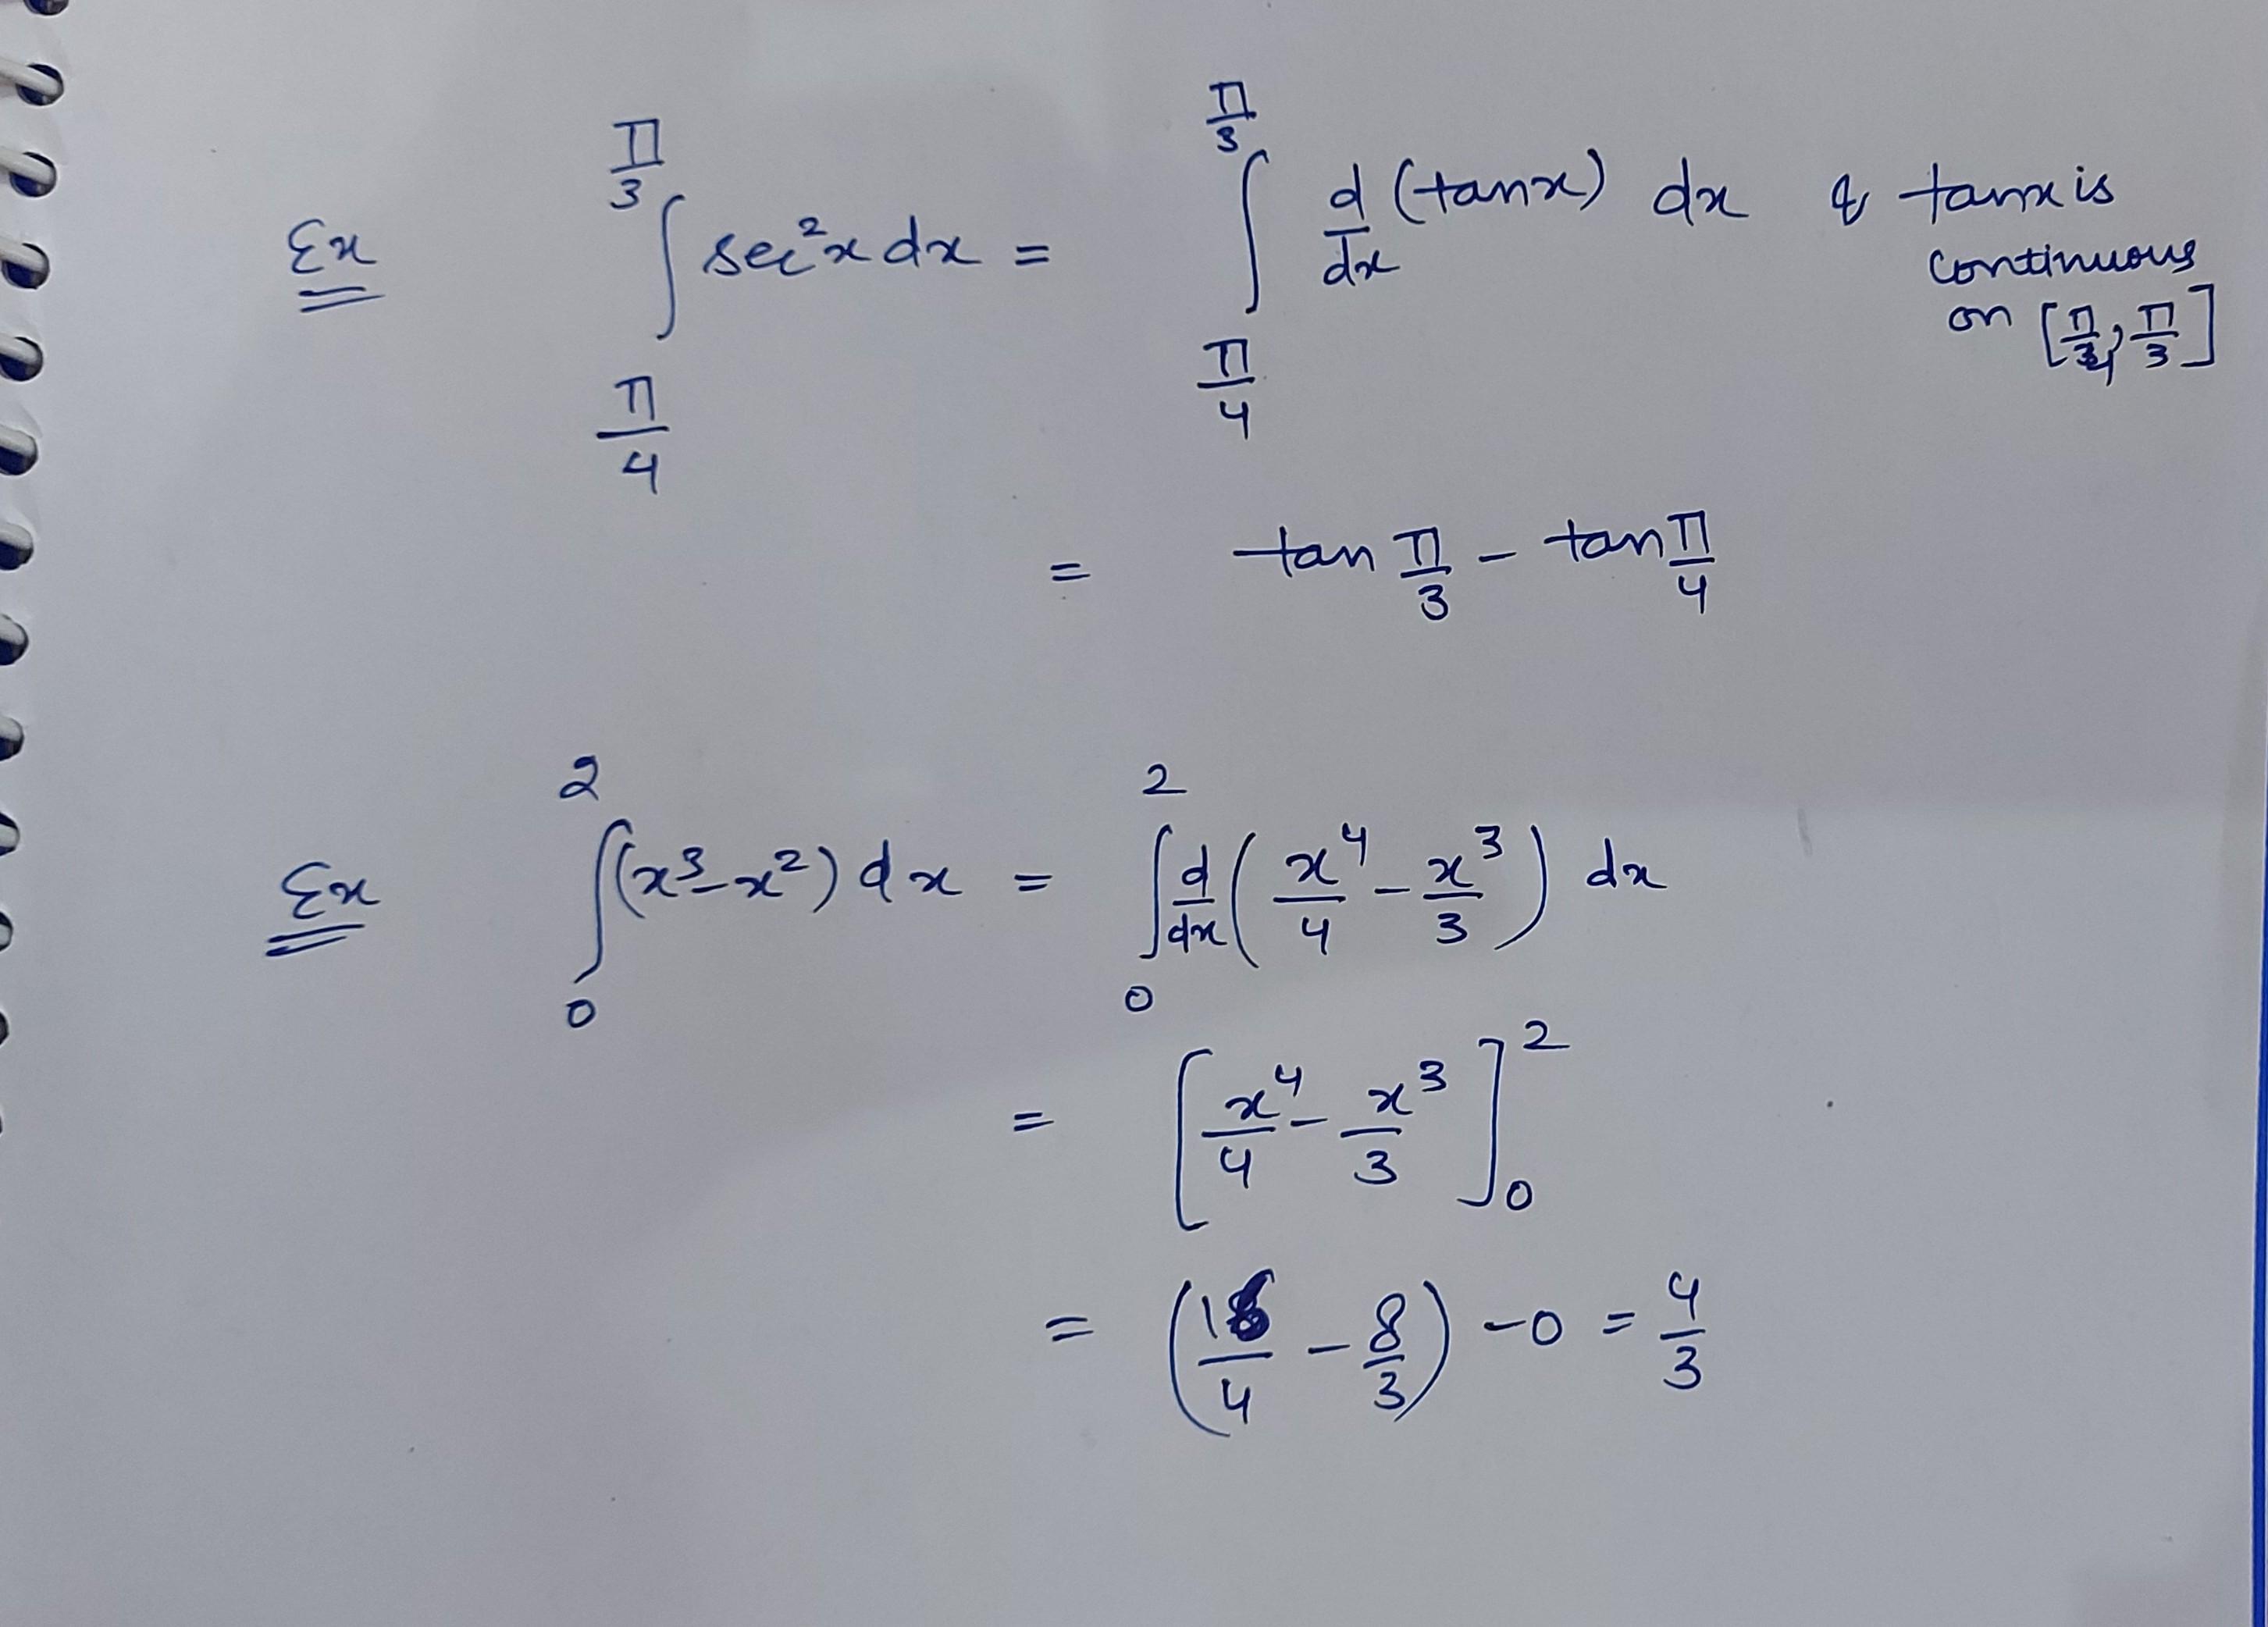 Ex ∫_{π/4}^{π/3} sec²x dx = ∫_{π/4}^{π/3} d/dx (tanx) dx & tanx is
continuous
on [π/4, π/3]
= tan π/3 - tan π/4
Ex ∫_0^2 (x³-x²) dx = ∫_0^2 d/dx (x⁴/4 - x³/3) dx
= [x⁴/4 - x³/3]_0^2
= (16/4 - 8/3) - 0 = 4/3